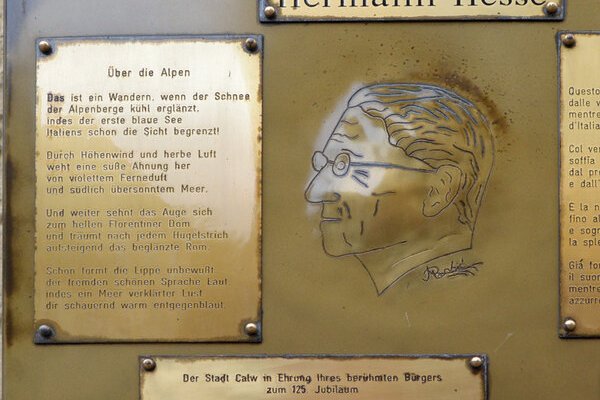 Hermann Hesse
Über die Alpen
Das ist ein Wandern, wenn der Schnee
der Alpenberge kühl erglänzt,
indes der erste blaue See
Italiens schon die Sicht begrenzt!
Durch Höhenwind und herbe Luft
weht eine süße Ahnung her
von violettem Ferneduft
und südlich übersonntem Meer.
Und weiter sehnt das Auge sich
zum hellen Florentiner Dom
und träumt nach jedem Hügelstrich
aufsteigend das beglänzte Rom.
Schon formt die Lippe unbewußt
der fremden schönen Sprache Laut,
indes ein Meer verklärter Lust
dir schauernd warm entgegenblaut.
Questo
dalle v
mentre
d'Italia
Col ve
soffia
dal pr
e dall'
E la n
fino al
e sogn
la sple
Già for
il suon
mentre
azzurr
Der Stadt Calw in Ehrung Ihres berühmten Bürgers
zum 125. Jubiläum